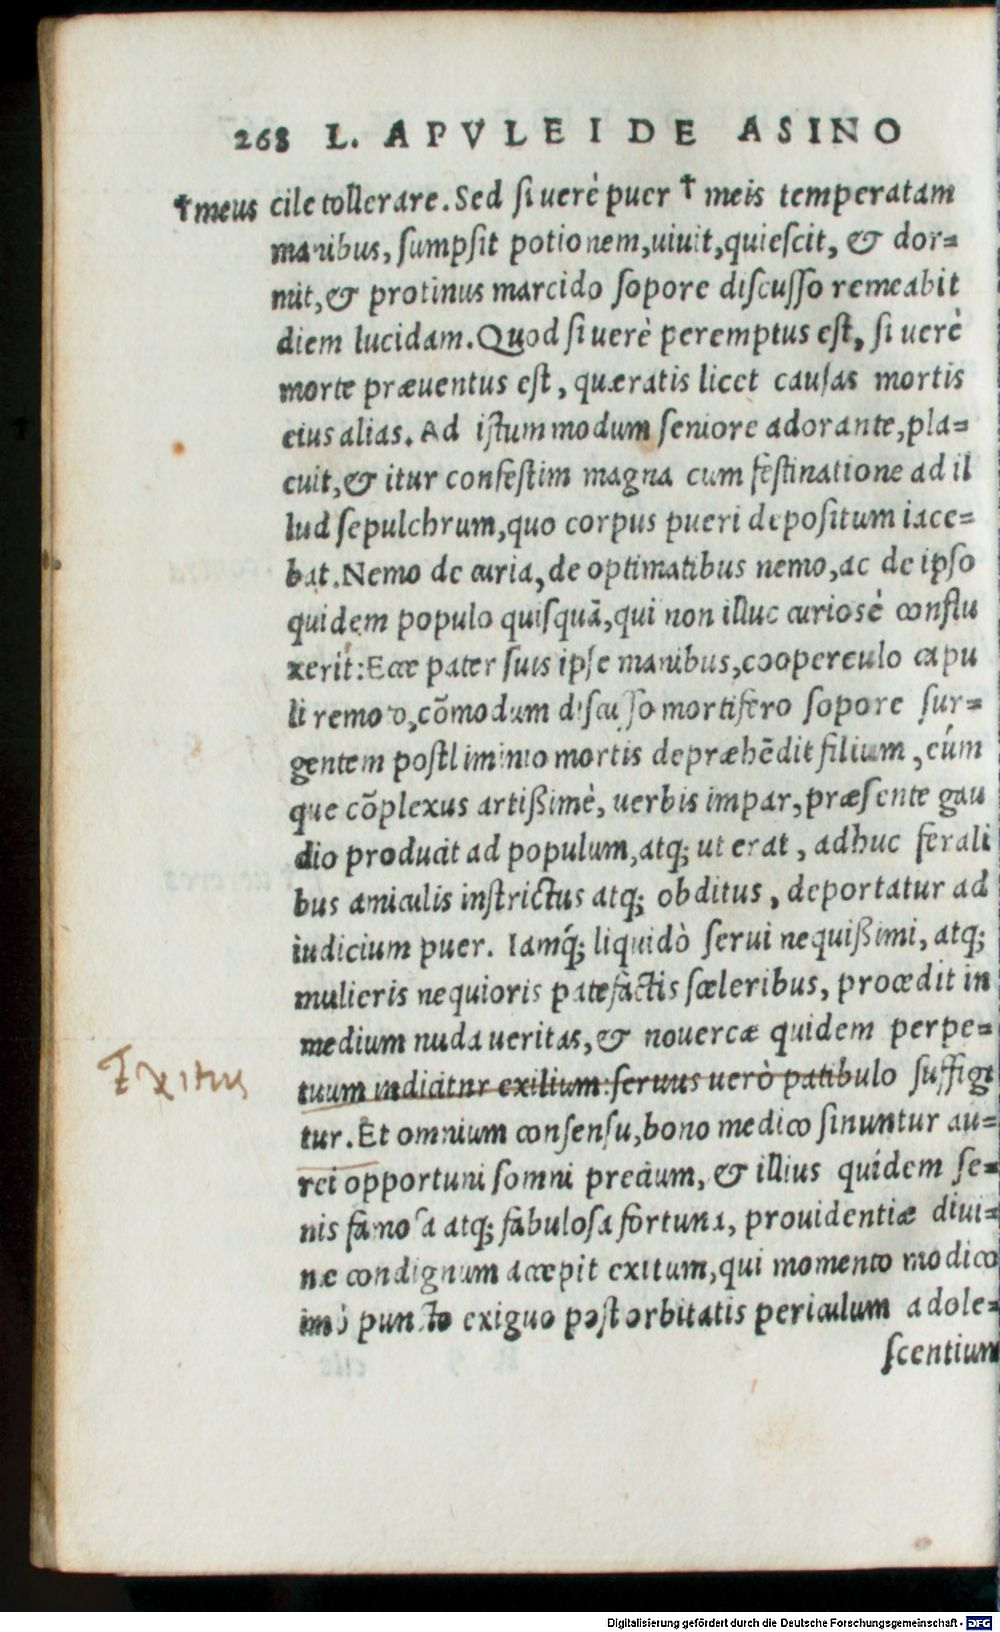 268 L. APVLEI DE ASINO
†meus cile tollerare. Sed si uerè puer † meis temperatam
manibus, sumpsit potionem, uiuit, quiescit, & dor=
mit, & protinus marcido sopore discusso remeabit
diem lucidam. Quod si uerè peremptus est, si uerè
morte præuentus est, quæratis licet causas mortis
eius alias. Ad istum modum seniore adorante, pla=
cuit, & itur confestim magna cum festinatione ad il
lud sepulchrum, quo corpus pueri depositum iace=
bat. Nemo de curia, de optimatibus nemo, ac de ipso
quidem populo quisquā, qui non illuc curiosè conflu
xerit: Ecce pater suis ipse manibus, cooperculo capu
li remoto, cōmodum discusso mortifero sopore sur=
gentem postliminio mortis depræhēdit filium, eúm
que cōplexus artißimè, uerbis impar, præsente gau
dio producit ad populum, atq; ut erat, adhuc ferali
bus amiculis instrictus atq; obditus, deportatur ad
iudicium puer. Iamq́; liquidò serui nequißimi, atq;
mulieris nequioris patefactis sceleribus, procedit in
medium nuda ueritas, & nouercæ quidem perpe=
Exitus
tuum indicitur exilium: seruus uerò patibulo suffigi
tur. Et omnium consensu, bono medico sinuntur au=
rei opportuni somni precium, & illius quidem se=
nis famosa atq; fabulosa fortuna, prouidentiæ diui=
næ condignum accepit exitum, qui momento modico
imò puncto exiguo post orbitatis periculum adole=
scentium
Digitalisierung gefördert durch die Deutsche Forschungsgemeinschaft - DFG